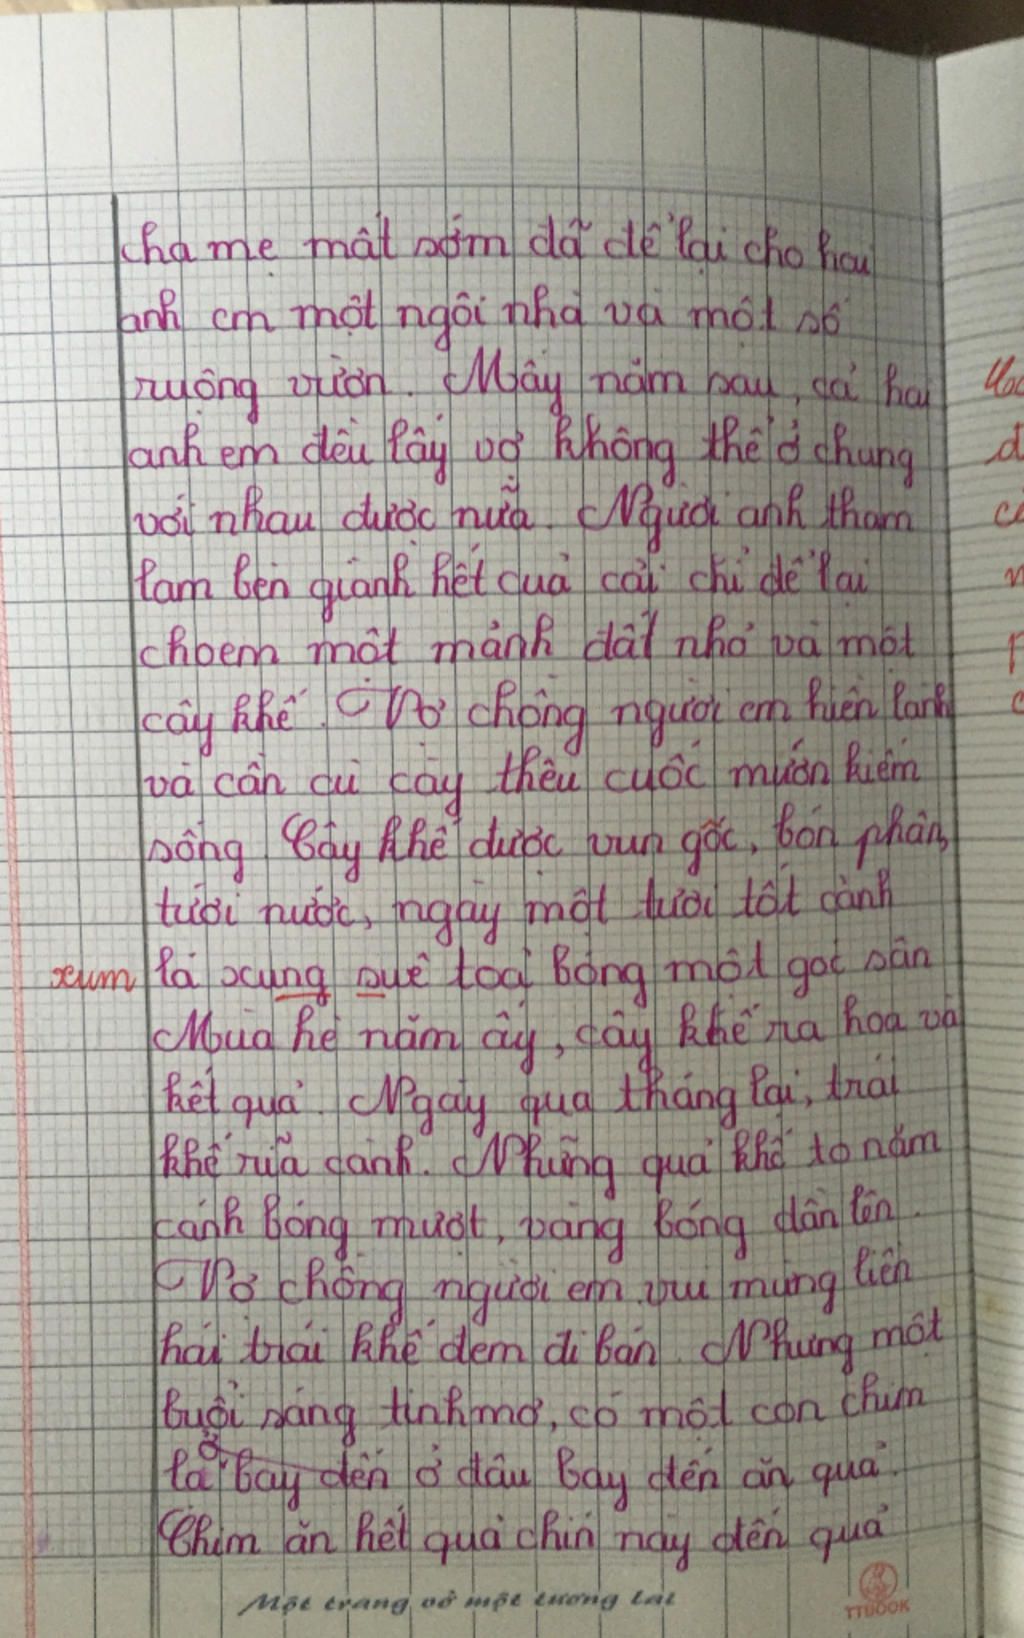 cha mẹ mất sớm đã để lại cho hai
anh em một ngôi nhà và một số
ruộng vườn. Mấy năm sau, cả hai
anh em đều lấy vợ không thể ở chung
với nhau được nữa. Người anh tham
lam bèn giành hết quả cải chỉ để lại
cho em một mảnh đất nhỏ và một
cây khế. Vợ chồng người em hiền lành
và cần cù cày thêu cuốc mướn kiếm
sống Cây khế được vun gốc, bón phân,
tưới nước, ngày một tươi tốt cành
xum lá xung suê toả bóng một góc sân
Mùa hè năm ấy, cây khế ra hoa và
kết quả. Ngày qua tháng lại, trái
khế rũa cành. Những quả khế to năm
cánh bóng mượt, vàng bóng dần lên.
Vợ chồng người em vui mừng liền
hái trái khế đem đi bán. Nhưng một
buổi sáng tinh mơ, có một con chim
lạ ở đâu bay đến ăn quả.
Chim ăn hết quả chín này đến quả
Một trang vở một tương lai
TTBOOK